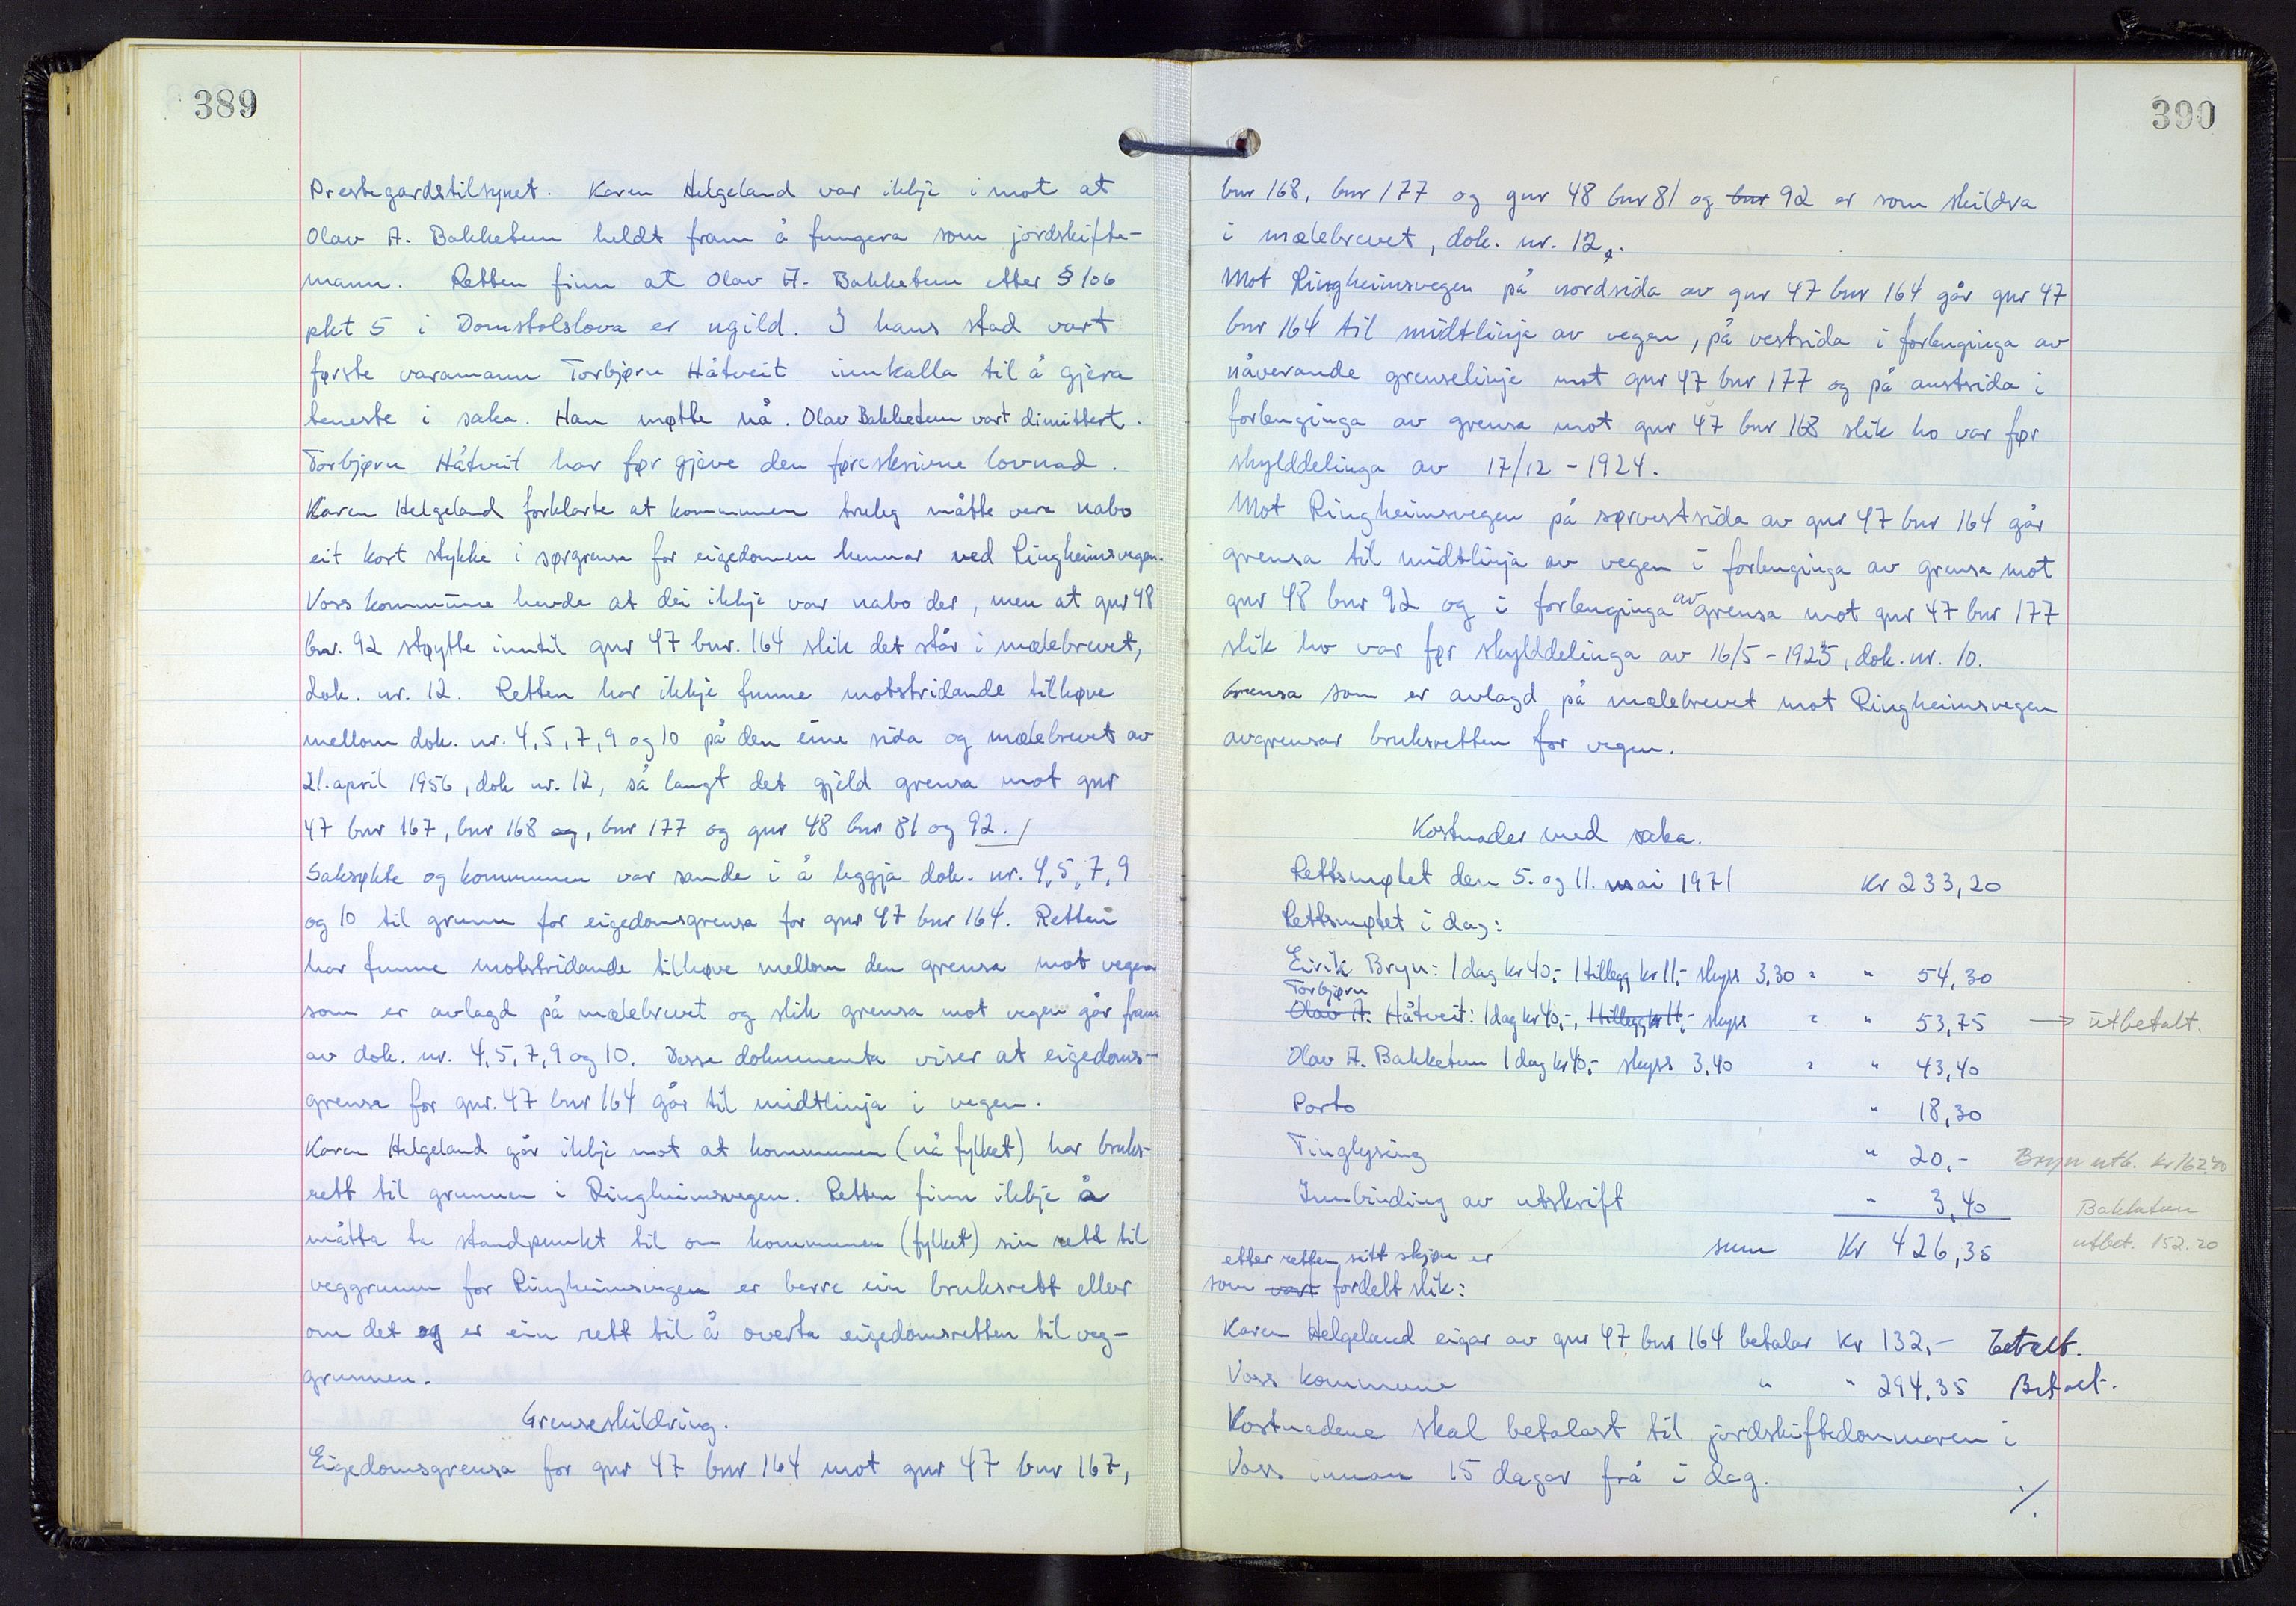 389
Prestegardstilsynet. Karen Helgeland var ikkje i mot at
Olav A. Bakketun heldt fram å fungera som jordskifte-
mann. Retten finn at Olav A. Bakketun etter § 106
pkt 5 i Domstolslova er ugild. I hans stad vart
første varamann Torbjørn Håtveit innkalla til å gjera
teneste i saka. Han møtte nå. Olav Bakketun vart dimittert.
Torbjørn Håtveit har før gjeve den føreskrivne lovnad.
Karen Helgeland forklarte at kommunen truleg måtte vera nabo
eit kort stykke i sørgrensa for eigedomen hennar ved Ringheimsvegen.
Voss kommune hevda at dei ikkje var nabo der, men at gnr 48
bnr. 92 støytte inntil gnr 47 bnr. 164 slik det står i målebrevet,
dok. nr. 12. Retten har ikkje funne motstridande tilhøve
mellom dok. nr. 4, 5, 7, 9 og 10 på den eine sida og målebrevet av
21. april 1956, dok nr. 12, så langt det gjeld grensa mot gnr
47 bnr 167, bnr 168 og, bnr 177 og gnr 48 bnr 81 og 92.
Saksøkte og kommunen var samde i å leggja dok. nr. 4, 5, 7, 9
og 10 til grunn for eigedomsgrensa for gnr 47 bnr 164. Retten
har funne motstridande tilhøve mellom den grensa mot vegen
som er avlagd på målebrevet og slik grensa mot vegen går fram
av dok. nr. 4, 5, 7, 9 og 10. Desse dokumenta viser at eigedoms-
grensa for gnr. 47 bnr 164 går til midtlinja i vegen.
Karen Helgeland går ikkje mot at kommunen (nå fylket) har bruks-
rett til grunnen i Ringheimsvegen. Retten finn ikkje å
måtta ta standpunkt til om kommunen (fylket) sin rett til
veggrunn for Ringheimsvegen er berre ein bruksrett eller
om det og er ein rett til å overta eigedomsretten til veg-
grunnen.
Grenseskildring.
Eigedomsgrensa for gnr 47 bnr 164 mot gnr 47 bnr 167,
390
bnr 168, bnr 177 og gnr 48 bnr 81 og bnr 92 er som skildra
i målebrevet, dok. nr. 12.
Mot Ringheimsvegen på nordsida av gnr 47 bnr 164 går gnr 47
bnr 164 til midtlinje av vegen, på vestsida i forlenginga av
nåverande grenselinje mot gnr 47 bnr 177 og på austsida i
forlenginga av grensa mot gnr 47 bnr 168 slik ho var før
skylddelinga av 17/12 - 1924.
Mot Ringheimsvegen på sørvestsida av gnr 47 bnr 164 går
grensa til midtlinja av vegen i forlenginga av grensa mot
gnr 48 bnr 92 og i forlenginga av grensa mot gnr 47 bnr 177
slik ho var før skylddelinga av 16/5 - 1925, dok. nr. 10.
Grensa som er avlagd på målebrevet mot Ringheimsvegen
avgrensar bruksretten for vegen.
Kostnader med saka.
Rettsmøtet den 5. og 11. mai 1971 Kr 233,20
Rettsmøtet i dag:
Eirik Bryn: 1 dag kr 40,- 1 tillegg kr 11,- skyss 3,30 = " 54,30
Torbjørn
Olav A. Håtveit: 1 dag kr 40,-, 1 tillegg kr 11,- skyss = " 53,75 → utbetalt.
Olav A. Bakketun 1 dag kr 40,- skyss 3,40 = " 43,40
Porto " 18,30
Tinglysing " 20,- Bryn utb. kr 162,40
Innbinding av utskrift " 3,40 Bakketun
sum Kr 426,35 utbet. 152.20
etter retten sitt skjøn er
som vart fordelt slik:
Karen Helgeland eigar av gnr 47 bnr 164 betalar Kr 132,- Betalt.
Voss kommune " " 294,35 Betalt.
Kostnadene skal betalast til jordskiftedommaren i
Voss innan 15 dagar frå i dag.
./.